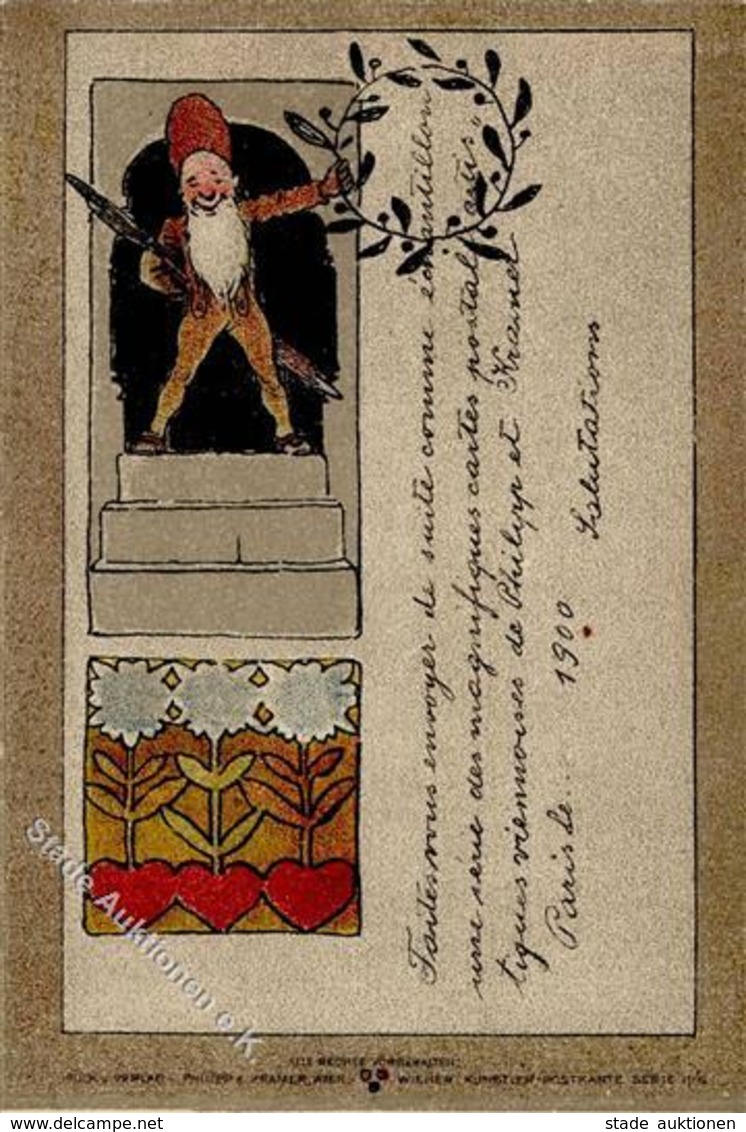 Faites vous envoyer de suite comme échantillon
une série des magnifiques cartes postal „artis"
tiques viennoises de Philipp et Kramer
Paris le.. 1900
Salutations
ALLE RECHTE VORBEHALTEN.
VERLAG PHILIPP & KRAMER, WIEN. WIENER KÜNSTLER-POSTKARTE SERIE
Stade Auktionen e.K.
stade auktionen